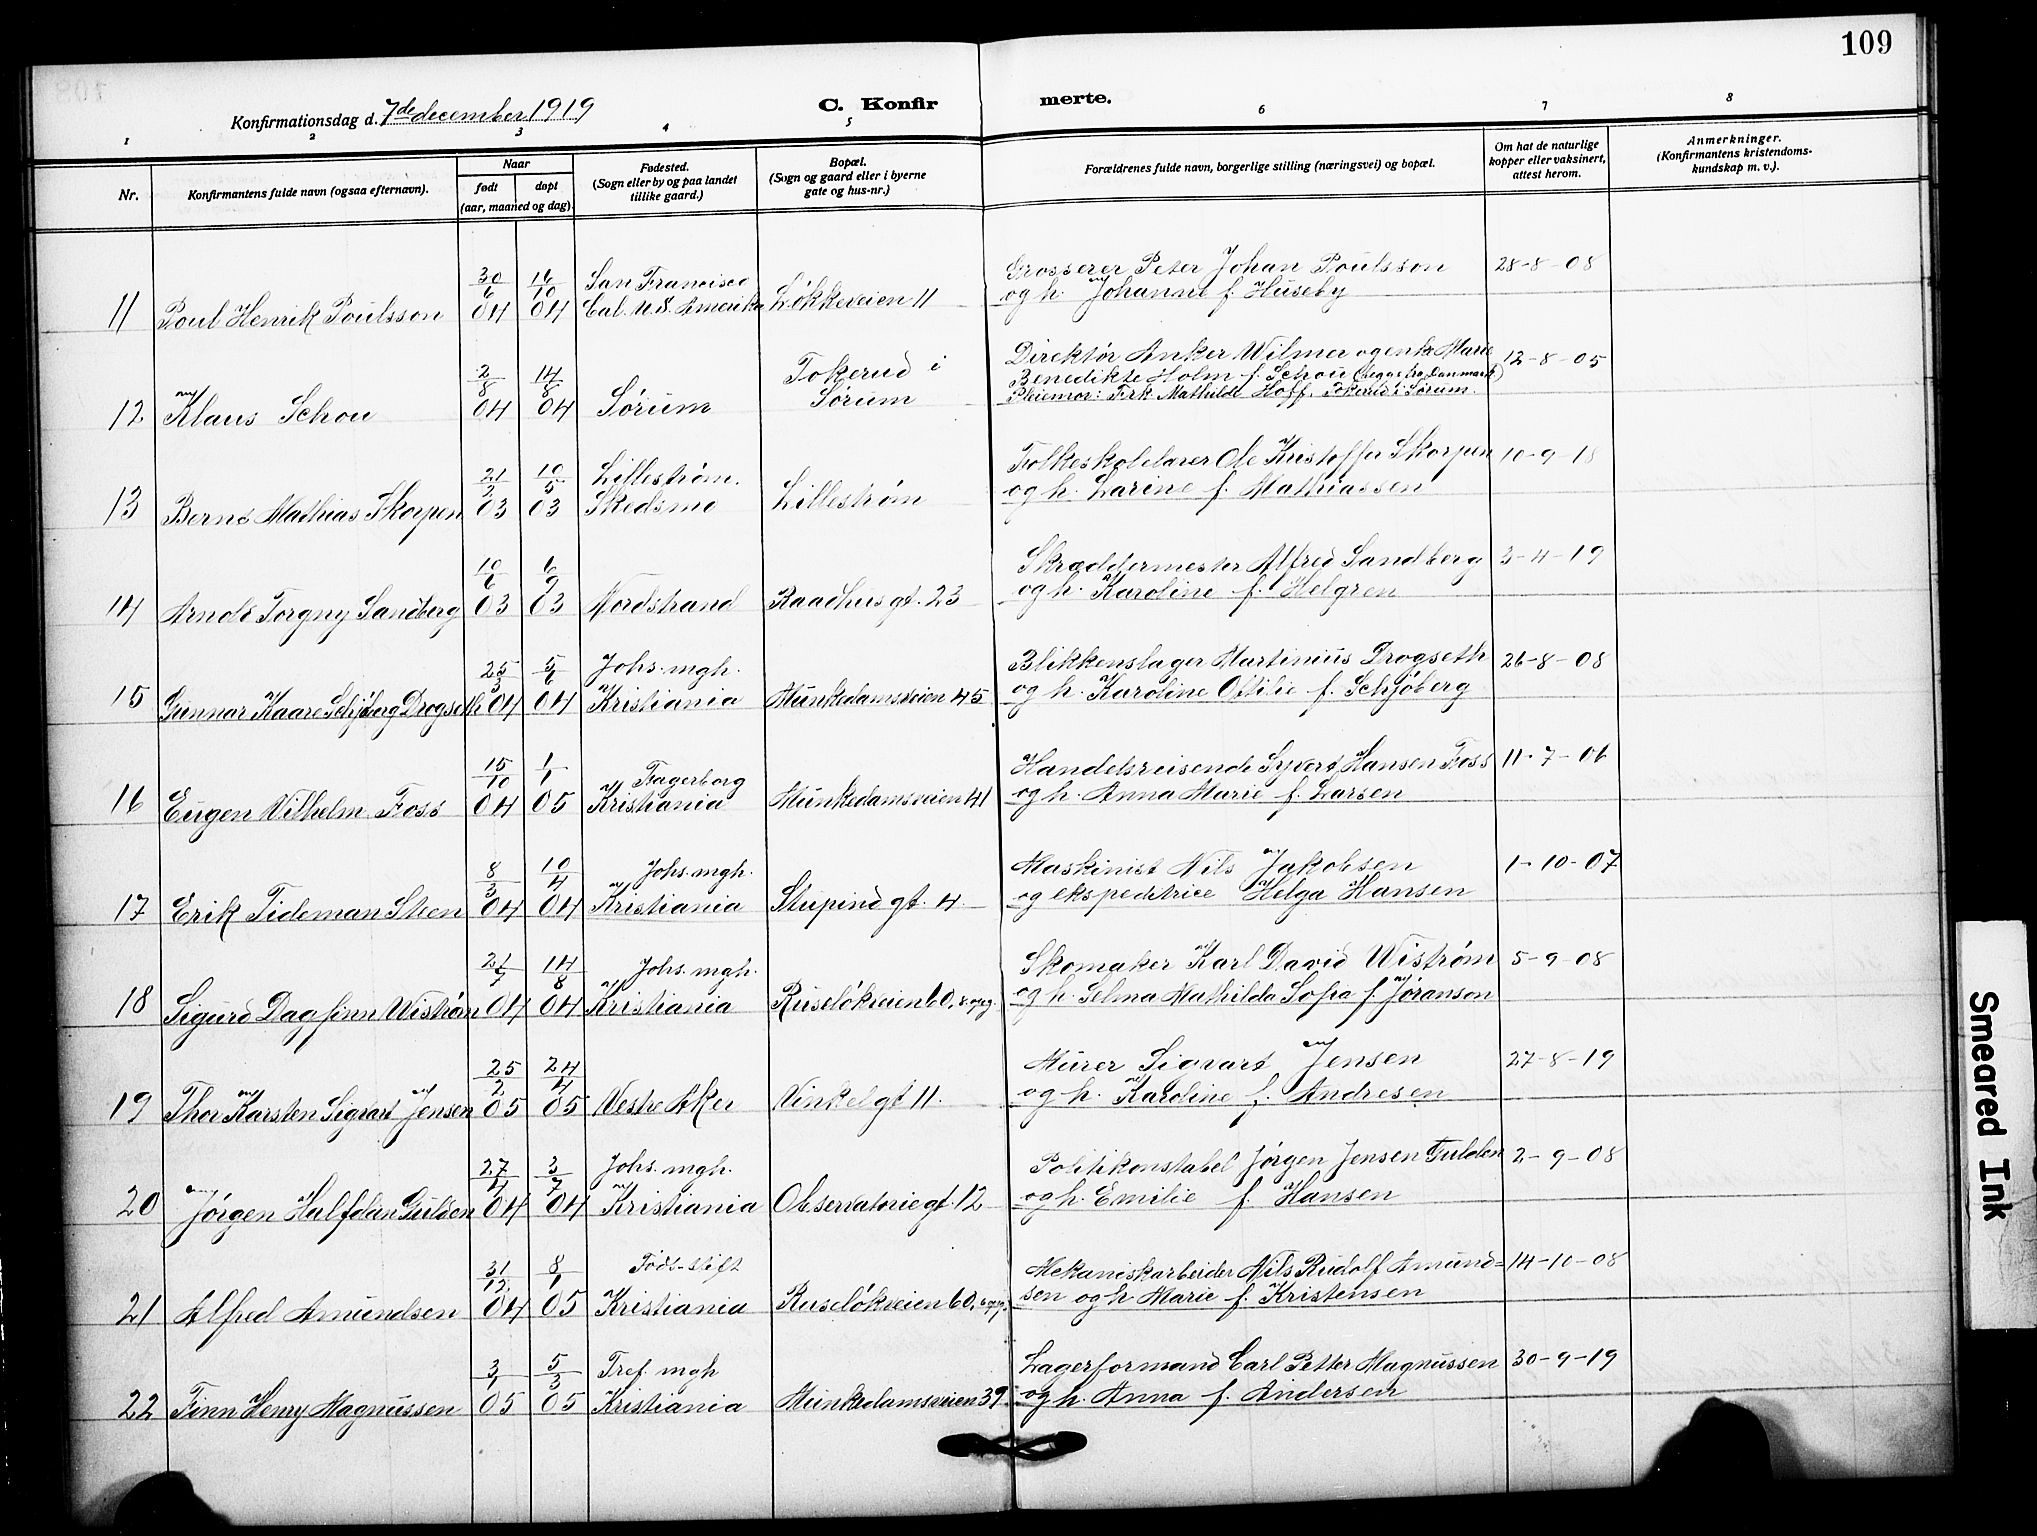 109
Konfirmationsdag d. 7de december 1919
C. Konfir merte.
1 2 3 4 5 6 7 8
Nr.
Konfirmantens fulde navn (ogsaa efternavn).
Naar
født døpt
(aar, maaned og dag).
Fødested.
(Sogn eller by og paa landet
tillike gaard.)
Bopæl.
(Sogn og gaard eller i byerne
gate og hus-nr.)
Forældrenes fulde navn, borgerlige stilling (næringsvei) og bopæl.
Om hat de naturlige
kopper eller vaksinert,
attest herom.
Anmerkninger.
(Konfirmantens kristendoms-
kundskap m. v.).
30/6 16/10 San Francisco Grosserer Peter Johan Poulsson 28-8-08
11 Poul Henrik Poulsson 04 04 Cal. U.S. Amerika Løkkeveien 11 og h. Johanne f. Huseby
2/8 14/8 Tokerud i Direktør Anker Wilmer og enke Marie 12-8-05
12 Klaus Schou 04 04 Sørum Sørum Benedikte Holm f. Schou (begge fra Danmark)
Pleiemor: Frk. Mathilde Hoff, Tokerud i Sørum.
21/2 10/5 Lillestrøm. Folkeskolelærer Ole Kristoffer Skorpen 10-9-18
13 Bernt Mathias Skorpen 03 03 Skedsmo Lillestrøm og h. Larine f. Mathiassen
10/6 6/9 Skræddermester Alfred Sandberg 3-4-19
14 Arnolt Torgny Sandberg 03 03 Nordstrand Raadhusgt. 23 og h. Karoline f. Helgren
25/3 5/6 Johs. mgh. Blikkenslager Martinius Drogseth 26-8-08
15 Gunnar Kaare Schjøberg Drogseth 04 04 Kristiania Munkedamsveien 45 og h. Karoline Ottilie f. Schjøberg
15/10 1/1 Fagerborg Handelsreisende Syvert Hansen Foss 11-7-06
16 Eugen Vilhelm Foss 04 05 Kristiania Munkedamsveien 41 og h. Anna Marie f. Larsen
8/2 10/4 Johs. mgh. Maskinist Nils Jakobsen 1-10-07
17 Erik Tideman Steen 04 04 Kristiania Stupindgt. 4 og ekspeditrice Helga Hansen
21/7 14/8 Johs. mgh. Skomaker Karl David Wistrøm 5-9-08
18 Sigurd Dagfinn Wistrøm 04 04 Kristiania Ruseløkveien 60, og h. Selma Mathilda Sofia f. Jøranson
25/2 24/4 Murer Sigvart Jensen 27-8-19
19 Thor Karsten Sigvart Jensen 05 05 Vestre Aker Vinkelgt 11. og h. Karoline f. Andresen
27/4 3/7 Johs. mgh. Politikonstabel Jørgen Jensen Gulden 2-9-08
20 Jørgen Halfdan Gulden 04 04 Kristiania Observatoriegt. 12 og h. Emilie f. Hansen
31/12 8/1 Føds-stift Mekaniskarbeider Nils Rudolf Amund= 14-10-08
21 Alfred Amundsen 04 05 Kristiania Ruseløkveien 60, sen og h Marie f. Kristensen
3/1 5/3 Tref. mgh Lagerformand Carl Petter Magnussen 30-9-19
22 Finn Henry Magnussen 05 05 Kristiania Munkedamsveien 39 og h. Anna f. Andersen
Smeared Ink